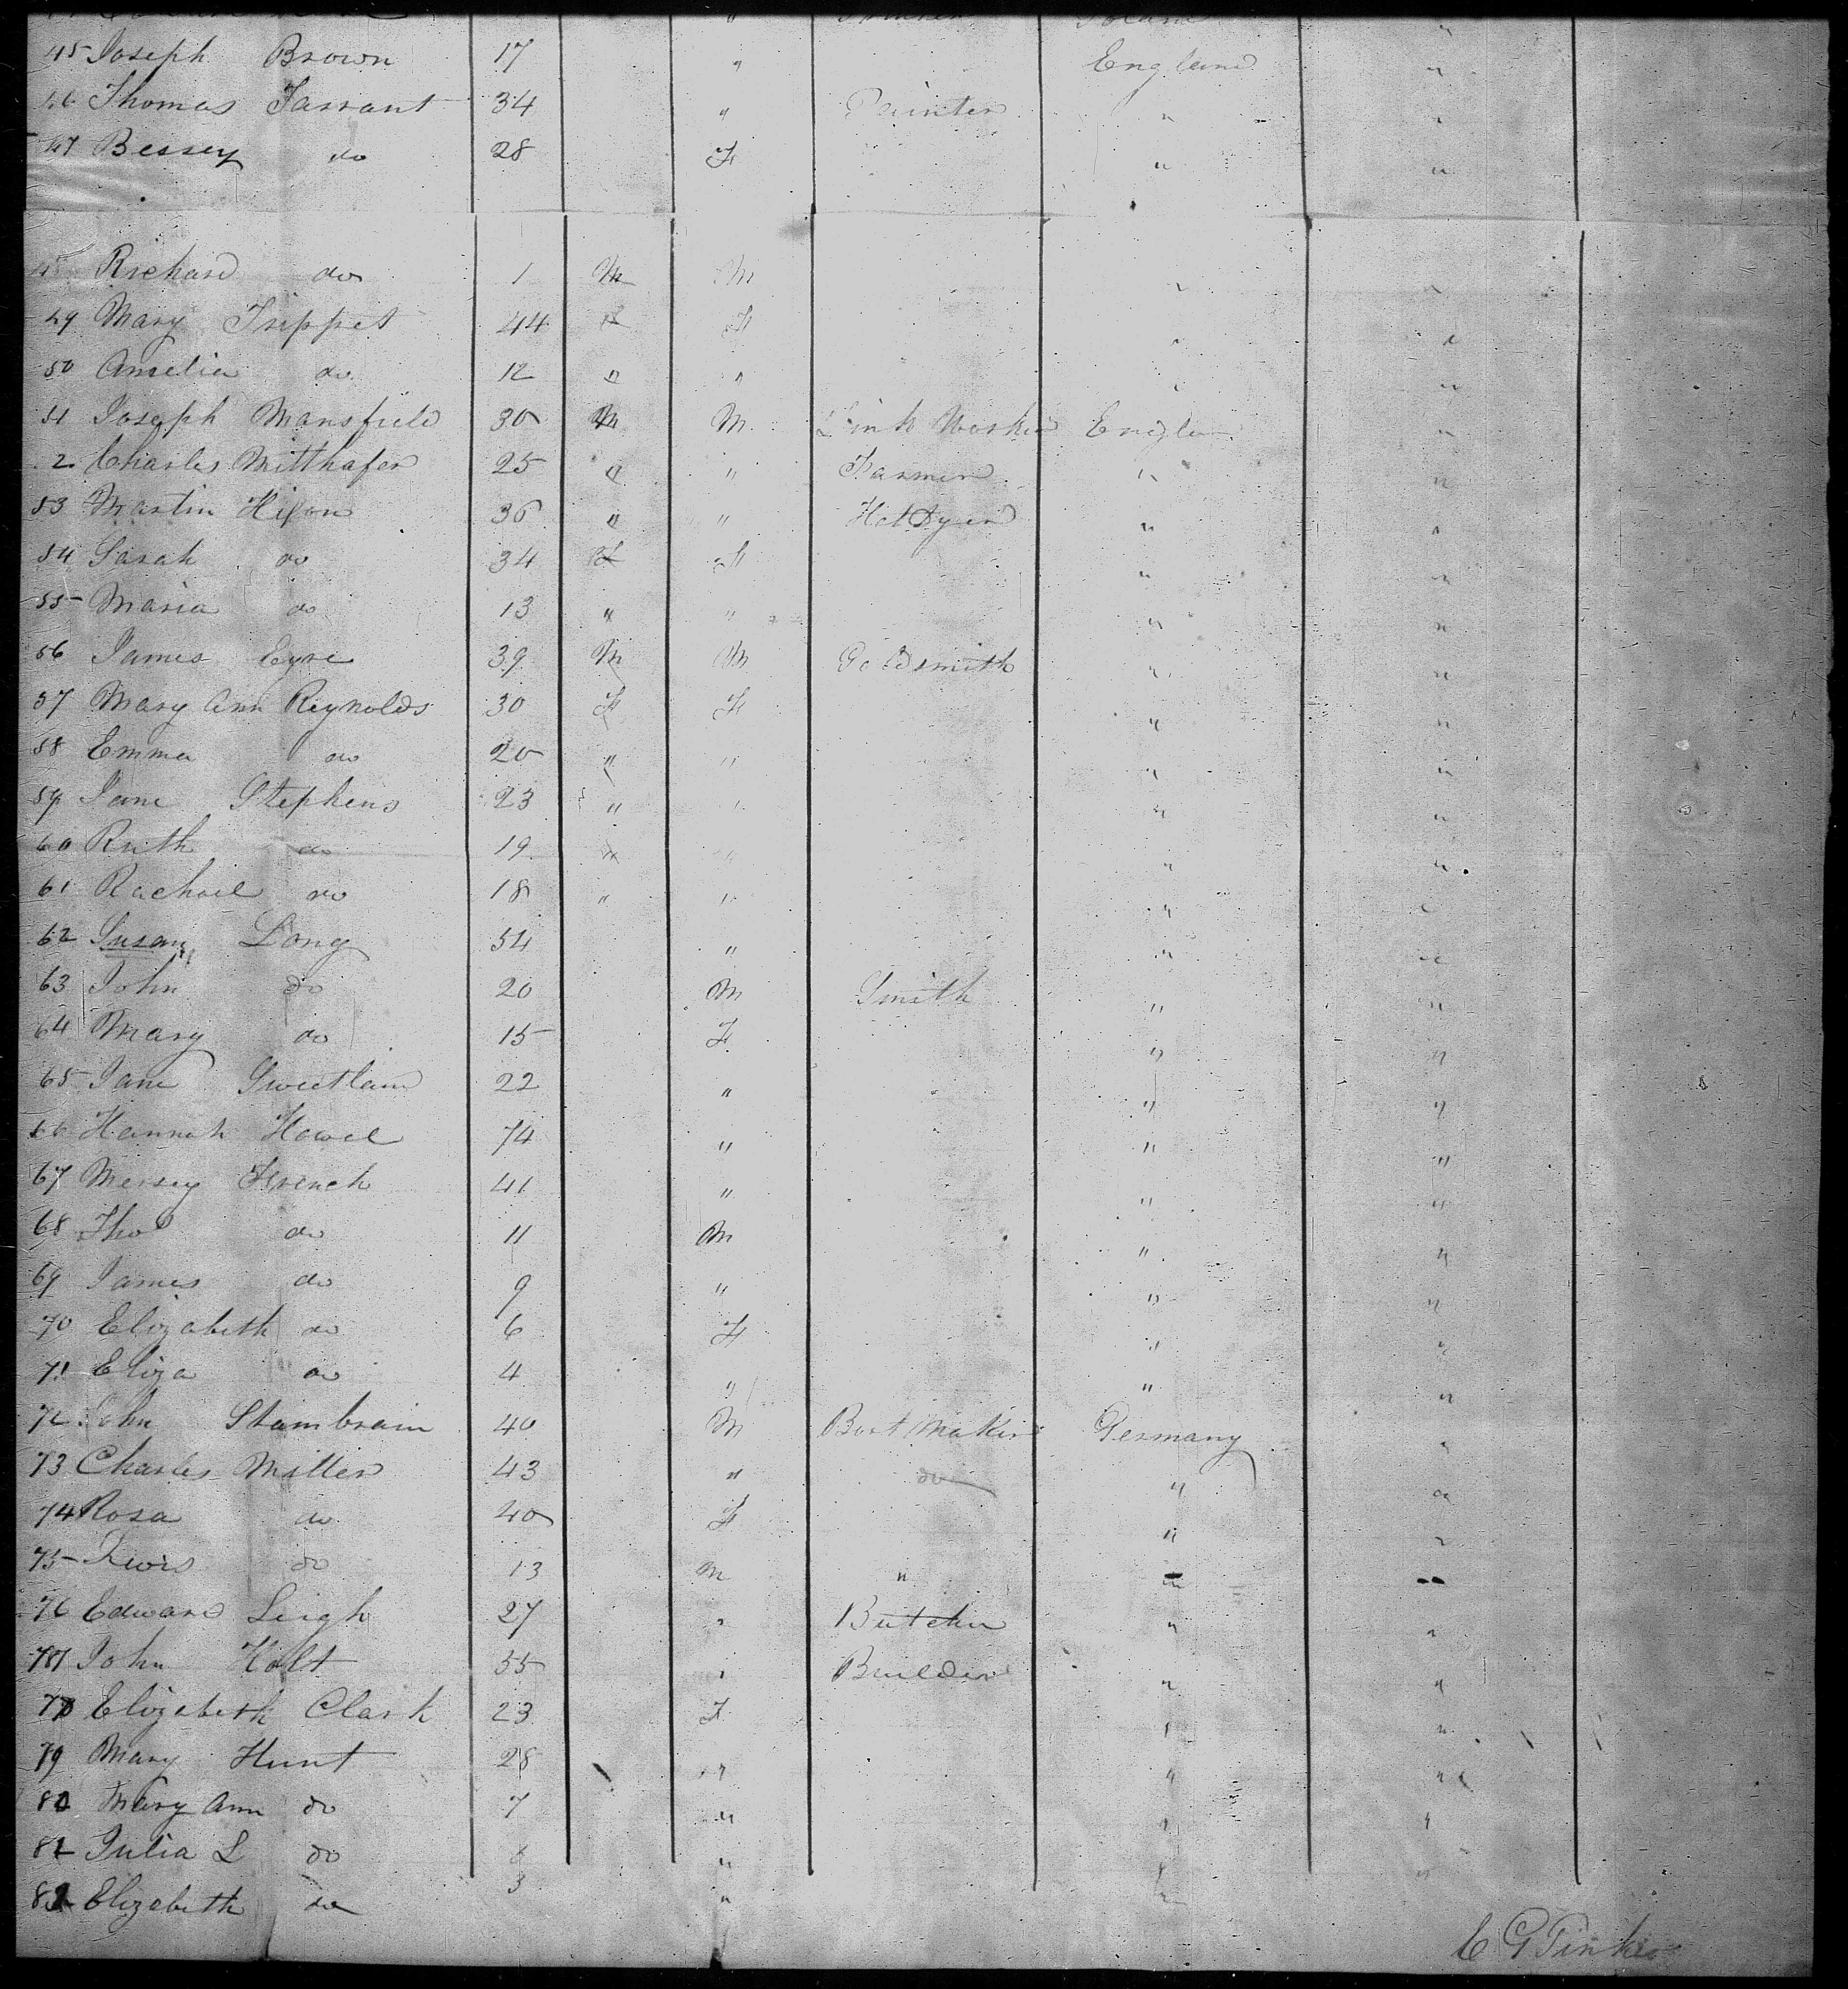 45 Joseph Brown 17 " England "
46 Thomas Tarrant 34 " Painter " "
47 Bessey do 28 F " "
Richard do 1 M M " "
49 Mary Trippet 44 F " "
50 Amelia do 12 " " " "
51 Joseph Mansfield 30 M M Worker Engla "
2 Charles Mitthafer 25 " " Farmer " "
53 Martin Hixon 36 " " Hat Dyer " "
54 Sarah do 34 F F " "
55 Maria do 13 " " " "
56 James Eyre 39 M M Goldsmith " "
57 Mary Ann Reynolds 30 F F " "
58 Emma do 20 " " " "
59 Jane Stephens 23 " " " "
60 Ruth do 19 " " " "
61 Rachael do 18 " " " "
62 Susan Long 54 " " "
63 John do 20 M Smith " "
64 Mary do 15 F " "
65 Jane Sweetlam 22 " " "
66 Hannah Howel 74 " " "
67 Mersey French 41 " " "
68 Thos do 11 M " "
69 James do 9 " " "
70 Elizabeth do 6 F " "
71 Eliza do 4 " " "
72 John Stambrain 40 M Boot Maker Germany "
73 Charles Miller 43 " do " "
74 Rosa do 40 F " "
75 Lewis do 13 M " " "
76 Edward Leigh 27 " Butcher " "
77 John Holt 55 " Builder " "
78 Elizabeth Clark 23 F " "
79 Mary Hunt 28 " " "
80 Mary Ann do 7 " " "
81 Julia L do " " "
82 Elizabeth do 3 " "
C G Tinker